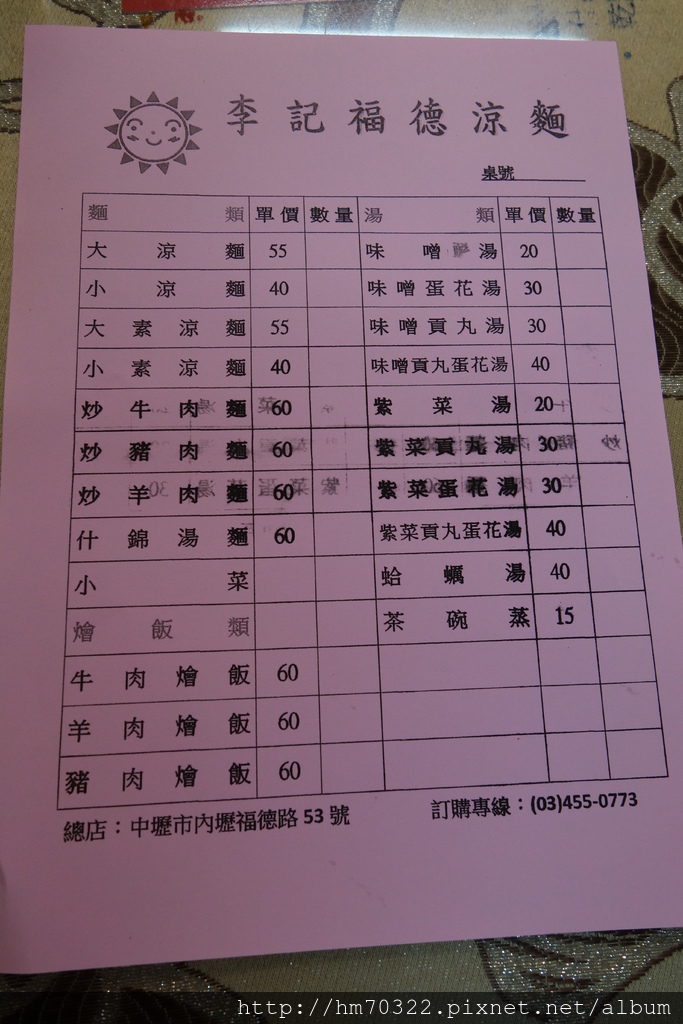 李記福德涼麵
桌號
麵類 單價 數量 湯類 單價 數量
大涼麵 55 味噌湯 20
小涼麵 40 味噌蛋花湯 30
大素涼麵 55 味噌貢丸湯 30
小素涼麵 40 味噌貢丸蛋花湯 40
炒牛肉麵 60 紫菜湯 20
炒豬肉麵 60 紫菜貢丸湯 30
炒羊肉麵 60 紫菜蛋花湯 30
什錦湯麵 60 紫菜貢丸蛋花湯 40
小菜 蛤蠣湯 40
燴飯類 茶碗蒸 15
牛肉燴飯 60
羊肉燴飯 60
豬肉燴飯 60
總店：中壢市內壢福德路 53 號 訂購專線：(03)455-0773
http://hm70322.pixnet.net/album